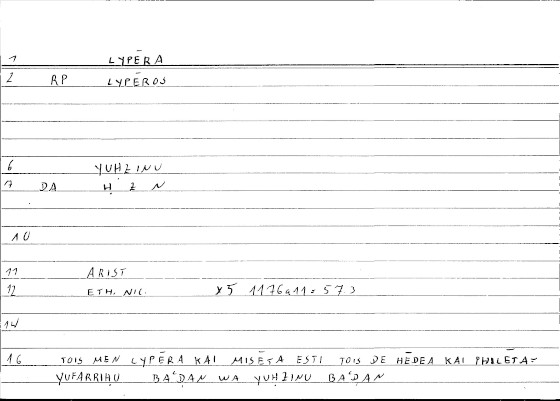 1 LYPĒRA
2 RP LYPĒROS
6 YUḤZINU
7 DA Ḥ Z N
10
11 ARIST
12 ETH. NIC. X5 1176a11 = 57.3
14
16 TOIS MEN LYPĒRA KAI MISĒTA ESTI TOIS DE HĒDEA KAI PHILĒTA=
YUFARRIḤU BAʻḌAN WA YUḤZINU BAʻḌAN